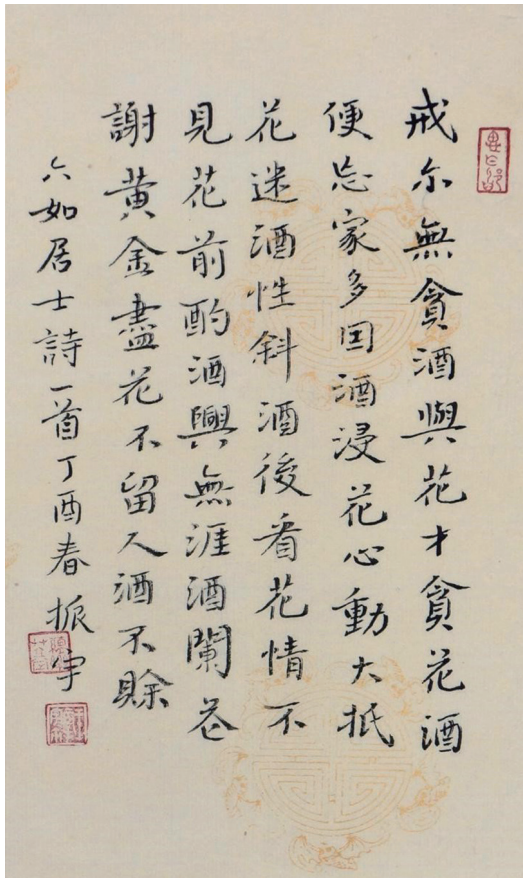 戒尔無貪酒與花才貪花酒
便忘家多因酒浸花心動大抵
花迷酒性斜酒後看花情不
見花前酌酒興無涯酒闌花
謝黄金盡花不留人酒不賒
六如居士詩一首丁酉春振宇